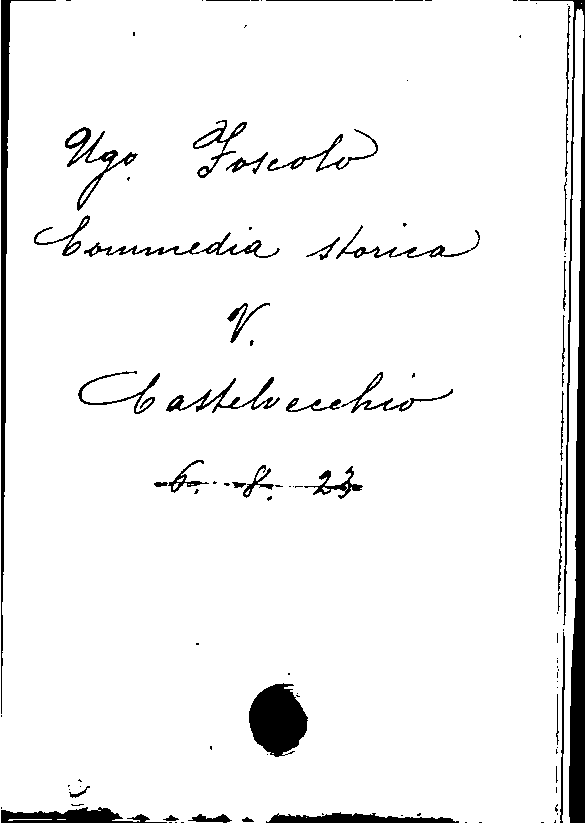 Ugo Foscolo
Commedia storica
V.
Castelvecchio
6. 8. 23